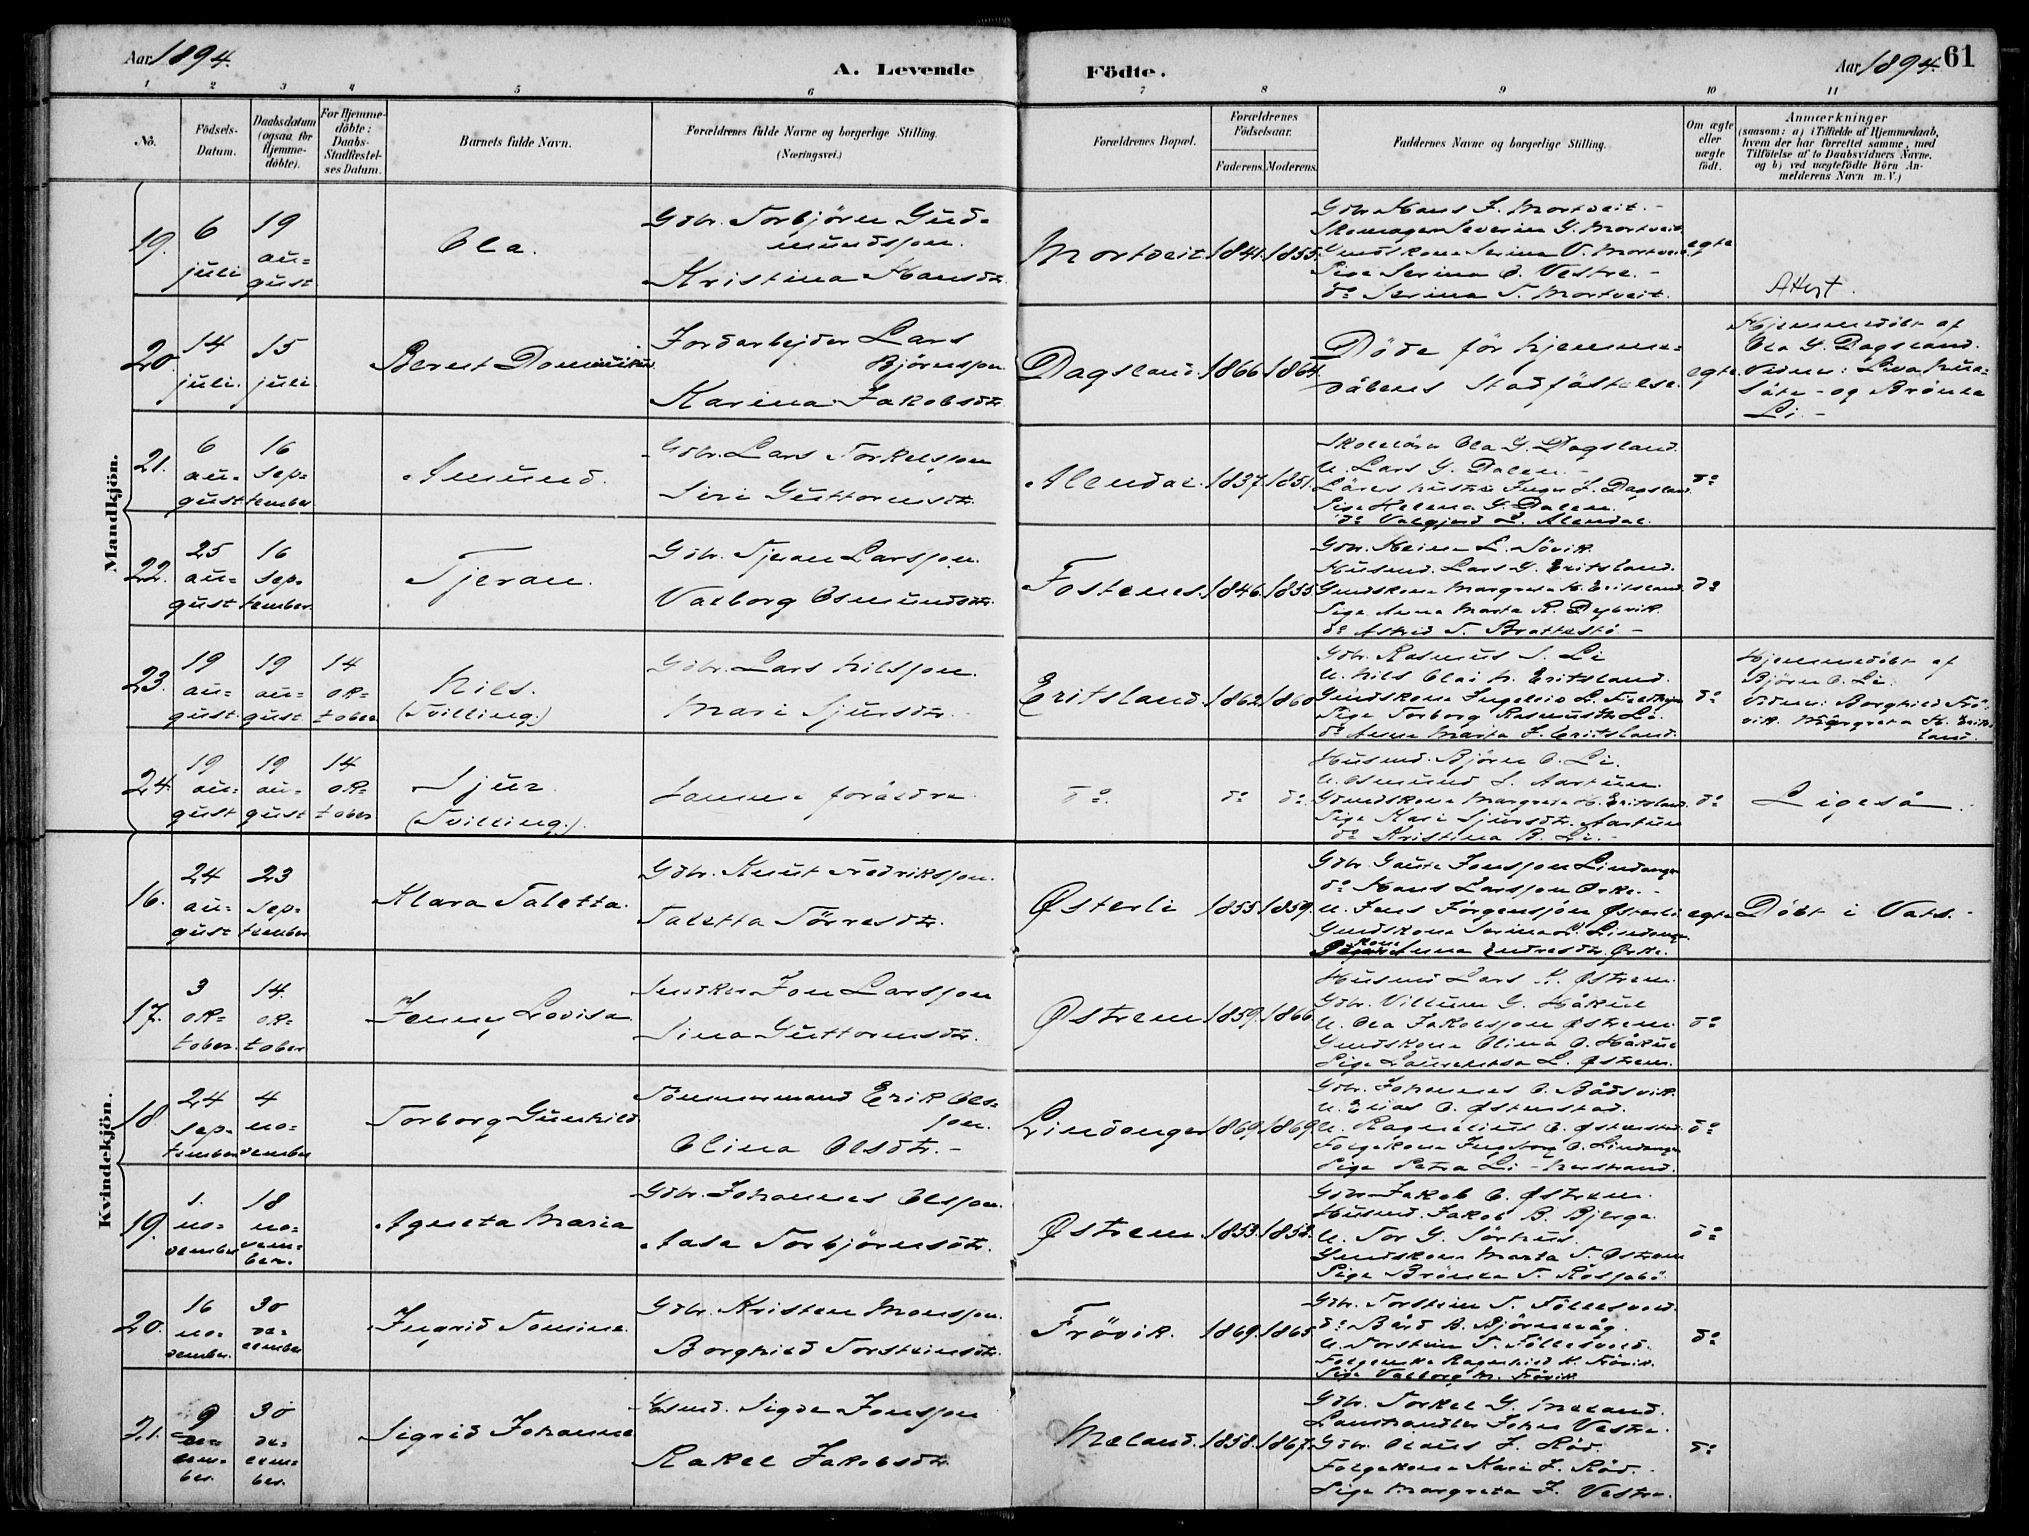 Aar 1894.
A. Levende
Födte.
Aar 1894. 61
1 2 3 4 5 6 7 8 9 10 11
No.
Födsels-
Datum.
Daabsdatum
(ogsaa for
Hjemme-
döbte).
For Hjemme-
döbte:
Daabs-
Stadfæstel-
ses Datum.
Barnets fulde Navn.
Forældrenes fulde Navne og borgerlige Stilling.
(Næringsvei.)
Forældrenes Bopæl.
Forældrenes
Födselsaar.
Faderens. Moderens.
Faddernes Navne og borgerlige Stilling.
Om ægte
eller
uægte
födt.
Anmærkninger
(saasom: a) i Tilfælde af Hjemmedaab,
hvem der har forrettet samme, med
Tilföielse af to Daabsvidners Navne,
og b) ved uægtefödte Börn An-
melderens Navn m. V.)
Mandkjön.
19. 6 juli 19 au-
gust
Ola.
Gdbr. Torbjörn Gud-
mundsson.
Kristina Hansdtr.
Mortveit 1841. 1855.
Gdbr. Hans J. Mortveit.
Skomager Severin G. Mortveit
Gmdskone Serina V. Mortveit
Pige Serina O. Vestre.
do Serina T. Mortveit.
egte
Attest.
20. 14 juli. 15 juli
Bernt Dominikus
Jordarbejder Lars
Björnsson
Karina Jakobsdtr.
Dagsland. 1866. 1864.
Döde för hjemme-
dåbens Stadfästelse.
egte
Hjemmedöbt af
Ola G. Dagsland.
Vidner: Lava
og Brönla
Li.
21. 6 au-
gust 16 sep-
tember
Amund.
Gdbr. Lars Torkelsson
Siri Guttormsdtr.
Alendal. 1837. 1851.
Skolelärer Ola G. Dagsland.
U. Lars G. Dalen.
Lärers hustru Inger J. Dagsland.
Pige Helena G. Dalen.
do Valgjerd L. Alendal.
do
22. 25 au-
gust 16 sep-
tember.
Tjeran.
Gdbr. Tjeran Larsson.
Valborg Osmundsdtr.
Fostenes. 1846. 1855.
Gdbr. Heine L. Sövik.
Husmd. Lars G. Eritsland.
Gmdskone Margreta H. Eritsland.
Pige Anna Marta R. Dybvik.
do Astrid T. Brattestö
do
23. 19 au-
gust. 19 au-
gust 14 ok-
tober
Nils.
(Tvilling.)
Gdbr. Lars Nilsson.
Mari Sjursdtr.
Eritsland. 1862. 1860.
Gdbr. Rasmus S. Li
U. Nils Olai N. Eritsland.
Gmdskone Ingeleiv L.
Pige Torborg Rasmusdtr. Li.
do Anna Marta J. Eritsland.
do
Hjemmedöbt af
Björn O. Li.
Vidner: Borghild Frö-
vik. Margreta H. Erits-
land.
24. 19 au-
gust 19 au-
gust 14 ok-
tober
Sjur
(Tvilling.)
Samme foräldre.
do. do do.
Husmd. Björn O. Li.
U. Osmund S. Aartun.
Gmdskone Margreta H. Eritsland.
Pige Kari Sjursdtr. Aartun
do Kristina B. Li.
do
Ligeså
Kvindekjön.
16. 24 au-
gust 23 sep-
tember
Klara Taletta.
Gdbr. Knut Fredriksson.
Taletta Törresdtr.
Østerli 1855. 1859.
Gdbr. Gaute Jonsson Lindanger
do Hans Larsson Ørke.
U. Jens Jörgensson Østerli
Gmdskone Serina L. Lindanger.
kone Anna Endresdtr. Ørke.
egte
Döbt i Vats.
17. 3 ok-
tober. 14. ok-
tober
Jenny Lovisa
Snedker Jon Larsson
Sina Guttormsdtr.
Østrem 1859. 1866.
Husmd Lars K. Østrem.
Gdbr. Villum G. Håkul
U. Ola Jakobsson Østrem.
Gmdskone Olina O. Håkul
Pige Laurentsa L. Østrem.
do
18. 24 sep-
tember 4 no-
vember
Torborg Gunhild
Tömmermand Erik Ols-
son.
Olina Olsdtr.
Lindanger 1869. 1869.
Gdbr. Johannes O. Bådsvik.
U. Elias O. Østenstad.
U. Kornelius O. Østenstad.
Folgekone Ingeborg O. Lindanger
Pige Petra Li Nerstrand.
do
19. 1. no-
vember 18 no-
vem-
ber.
Agneta Maria
Gdbr. Johannes Olsson.
Aasa Torbjörnsdtr.
Østrem 1853. 1853.
Gdbr. Jakob O. Østrem.
Husmd. Jakob B. Bjerga.
U. Tor G. Sörhus.
Gmdskone Marta T. Østrem
Pige Brönla T. Rösjabö.
do
20. 16 no-
vember. 30 de-
cember
Ingrid Tomine.
Gdbr. Kristen Monsson.
Borghild Torsteinsdtr.
Frövik. 1869. 1865.
Gdbr. Torstein T. Föllesvold.
do Bård A. Björnevåg.
U. Torstein T. Föllesvold.
Folgeenke Ragnhild K. Frövik.
Pige Valborg M. Frövik
do
21. 9 de-
cem-
ber. 30 de-
cem-
ber.
Sigrid Johanna
Gdbr. Sigve Jonsson
Rakel Jakobsdtr.
Meland. 1858. 1867.
Gdbr. Torkel G. Meland.
Landhandler John Vestre.
Gdbr. Claus J. Röd.
Folgekone Kari J. Röd.
Pige Margreta J. Vestre.
do